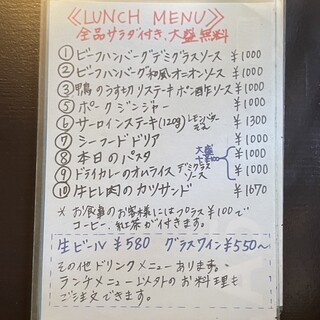 《LUNCH MENU》
全品サラダ付き、大盛無料
① ビーフハンバーグデミグラスソース ¥1000
② ビーフハンバーグ和風オニオンソース ¥1000
③ 鴨のうす切りステーキポン酢ソース ¥1000
⑤ ポークジンジャー ¥1000
⑥ サーロインステーキ(120g) レモンバター ¥1300
⑦ シーフードドリア ¥1000
⑧ 本日のパスタ 大盛+¥100 ¥1000
⑨ ドライカレーのオムライス デミグラスソース ¥1000
⑩ 牛ヒレ肉のカツサンド ¥1670
* お食事のお客様にはプラス¥100で
コーヒー、紅茶が付きます。
生ビール ¥580 グラスワイン ¥550~
その他ドリンクメニューあります。
ランチメニュー以外のお料理も
ご注文できます。